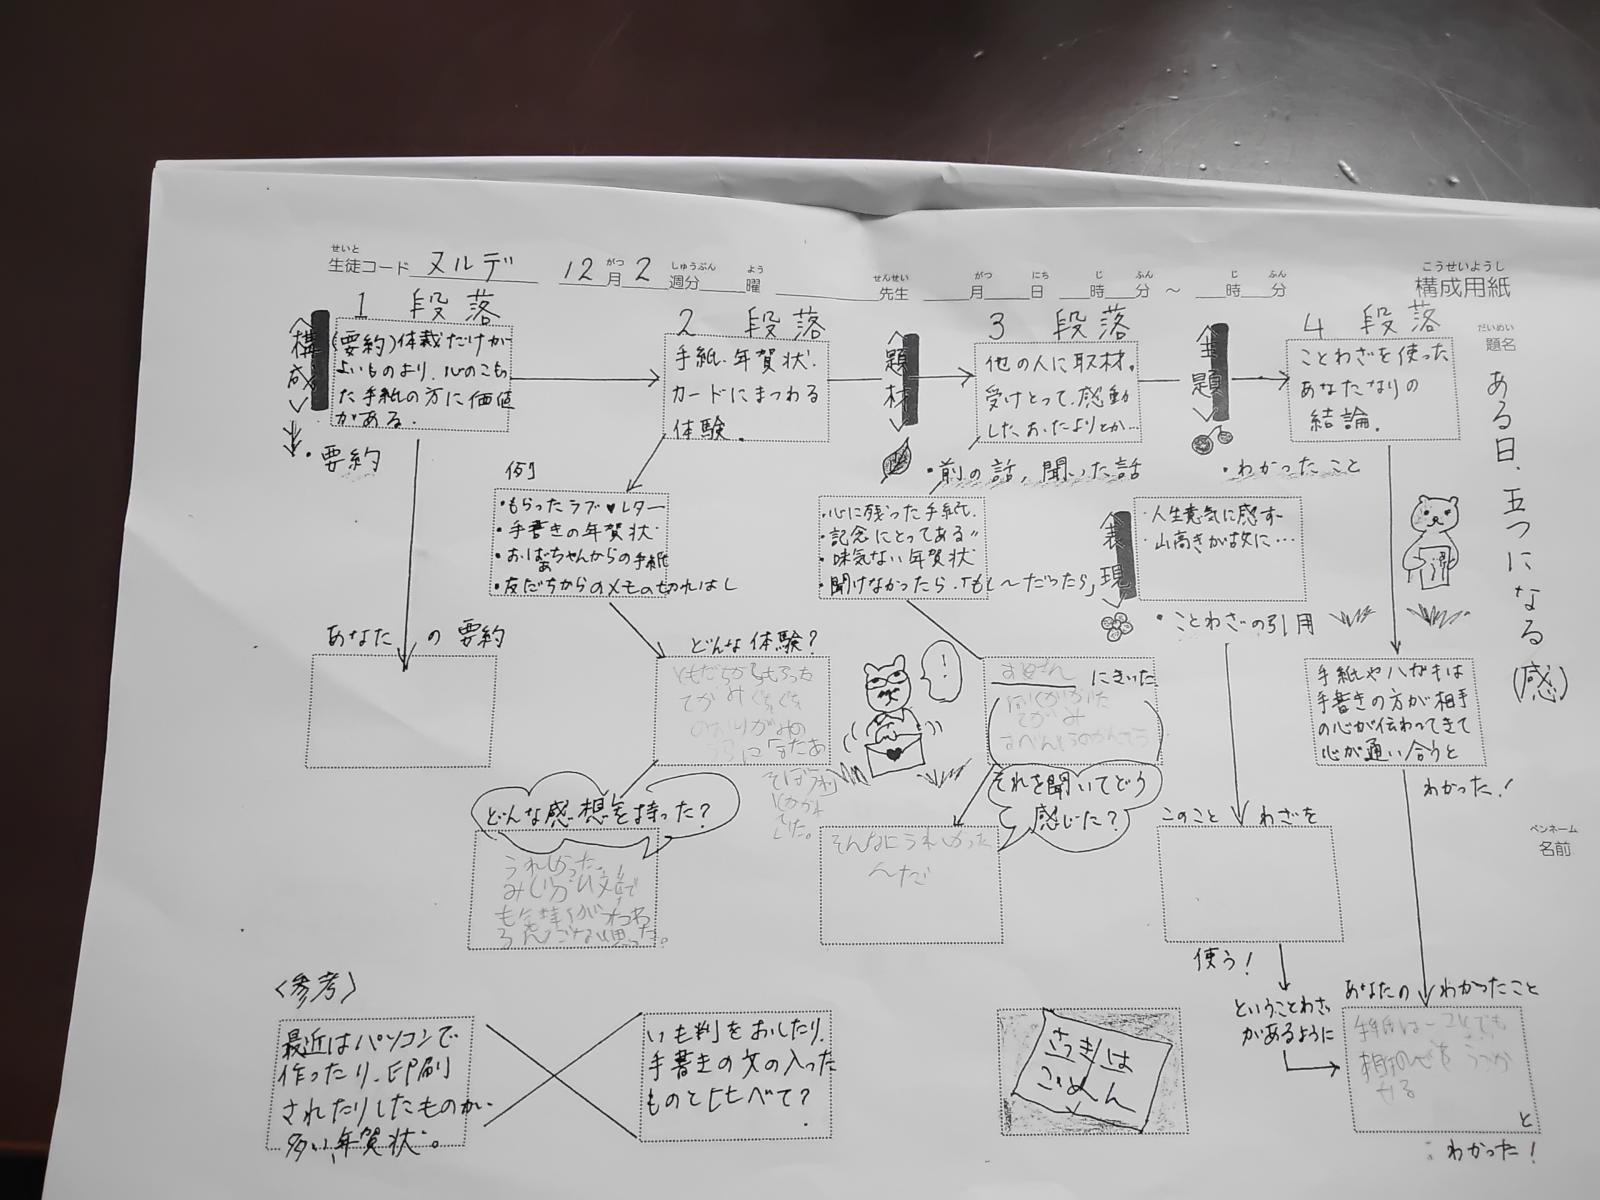 せいと がつ しゅうぶん よう せんせい がつ にち じ ふん じ ふん
生徒コード ヌルデ 12月2週分 曜 先生 月 日 時 分 ～ 時 分
こうせいようし
構成用紙
だいめい
題名
ある日、五つになる(感)
ペンネーム
名前
1 段落
<構成>
(要約)体裁だけが
よいものより、心のこもっ
た手紙の方に価値
がある。
・要約
2 段落
手紙・年賀状・
カードにまつわる
体験。
<題材>
3 段落
他の人に取材。
受けとって、感動
した、おたよりとか…
・前の話、聞いた話
<主題>
・わかったこと
4 段落
ことわざを使った
あなたなりの
結論。
例
・もらったラブ♥レター
・手書きの年賀状
・おばあちゃんからの手紙
・友だちからのメモの切れはし
・心に残った手紙。
・記念にとってある〃
・味気ない年賀状
・聞けなかったら、「もし～だったら」
<表現>
・人生意気に感ず
・山高きが故に…
・ことわざの引用
あなたの要約
どんな体験?
ともだちからもらった
てがみ
どんな感想を持った?
うれしかった。
みじかい文
も気持ち
!
お母さん にきいた
てがみ
それを聞いてどう
感じた?
そんなにうれしかった
んだ
このことわざを
使う!
ということわざ
があるように
手紙やハガキは
手書きの方が相手
の心が伝わってきて
心が通い合うと
わかった!
あなたのわかったこと
手紙は一ことでも
相手の心を
せる
と
わかった!
<参考>
最近はパソコンで
作ったり、印刷
されたりしたものが、
多い、年賀状。
いも判をおしたり、
手書きの文の入った
ものと比べて?
さっきは
ごめん